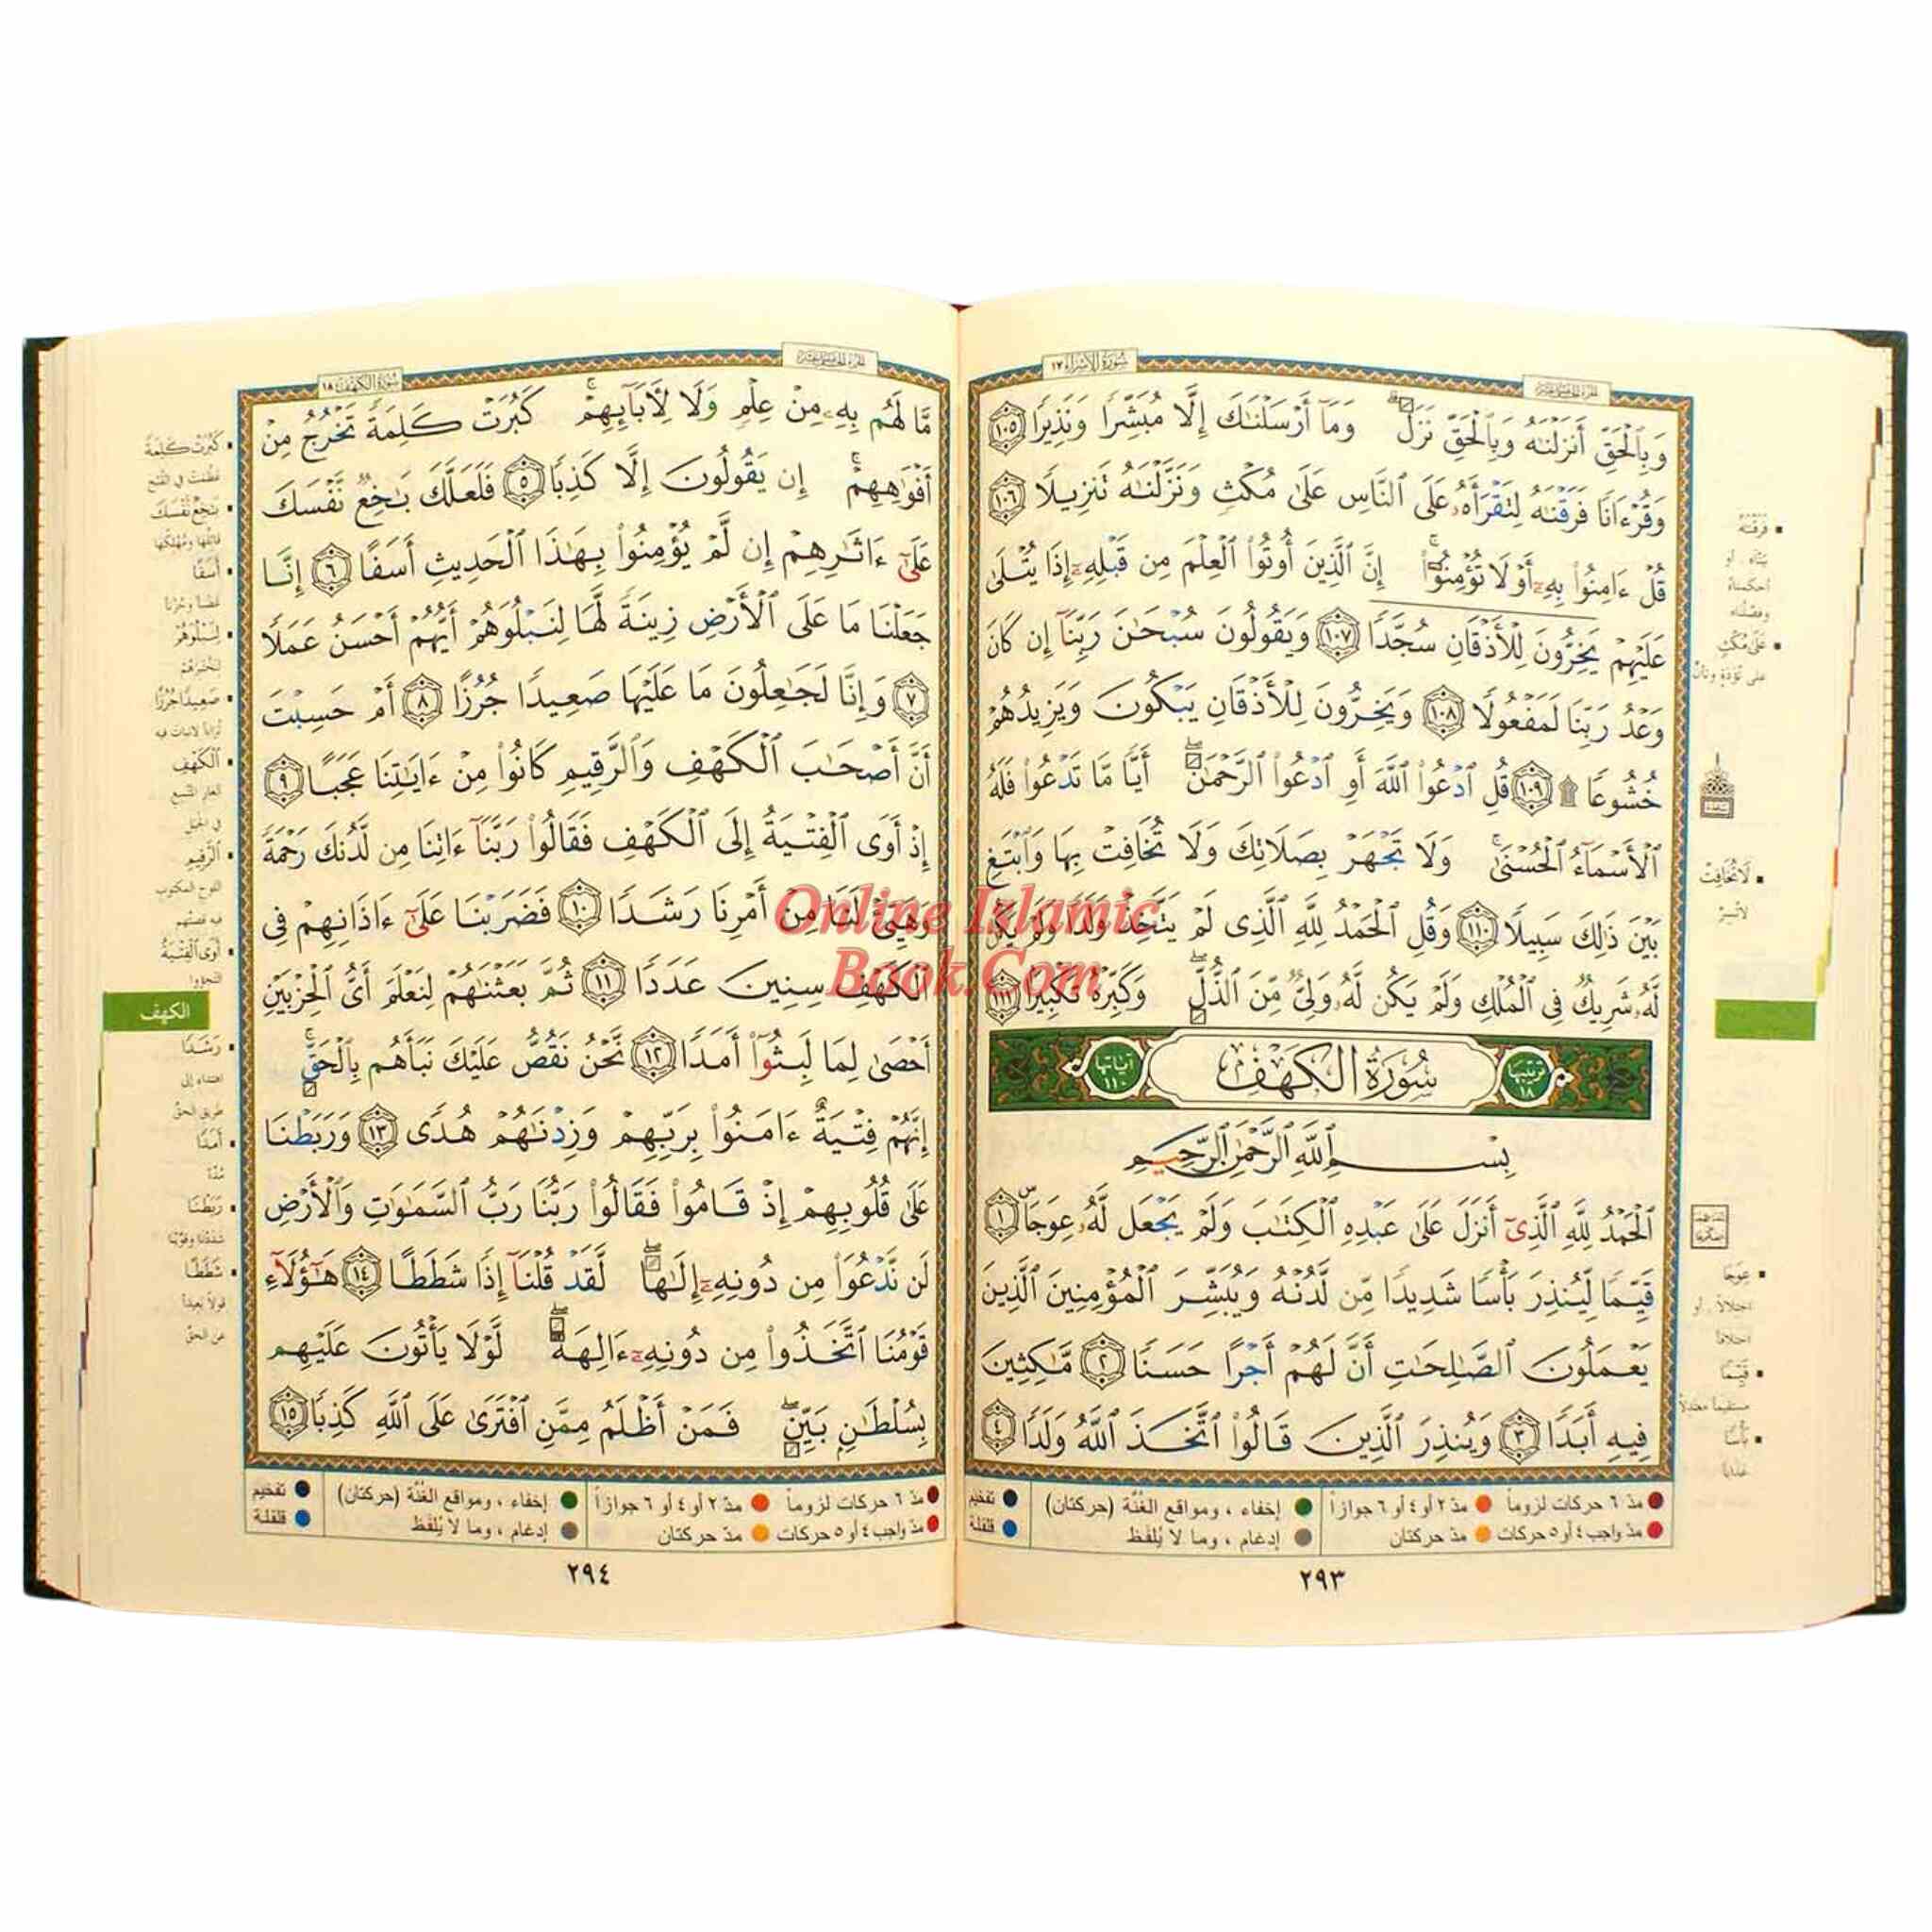 سُورَةُ الإِسْرَاء ١٧
وَبِٱلْحَقِّ أَنزَلْنَٰهُ وَبِٱلْحَقِّ نَزَلَ وَمَآ أَرْسَلْنَٰكَ إِلَّا مُبَشِّرًا وَنَذِيرًا ١٠٥
وَقُرْءَانًا فَرَقْنَٰهُ لِتَقْرَأَهُۥ عَلَى ٱلنَّاسِ عَلَىٰ مُكْثٍ وَنَزَّلْنَٰهُ تَنزِيلًا ١٠٦
قُلْ ءَامِنُوا۟ بِهِۦٓ أَوْ لَا تُؤْمِنُوٓا۟ إِنَّ ٱلَّذِينَ أُوتُوا۟ ٱلْعِلْمَ مِن قَبْلِهِۦٓ إِذَا يُتْلَىٰ
عَلَيْهِمْ يَخِرُّونَ لِلْأَذْقَانِ سُجَّدًا ١٠٧ وَيَقُولُونَ سُبْحَٰنَ رَبِّنَآ إِن كَانَ
وَعْدُ رَبِّنَا لَمَفْعُولًا ١٠٨ وَيَخِرُّونَ لِلْأَذْقَانِ يَبْكُونَ وَيَزِيدُهُمْ
خُشُوعًا ۩ ١٠٩ قُلِ ٱدْعُوا۟ ٱللَّهَ أَوِ ٱدْعُوا۟ ٱلرَّحْمَٰنَ أَيًّا مَّا تَدْعُوا۟ فَلَهُ
ٱلْأَسْمَآءُ ٱلْحُسْنَىٰ وَلَا تَجْهَرْ بِصَلَاتِكَ وَلَا تُخَافِتْ بِهَا وَٱبْتَغِ
بَيْنَ ذَٰلِكَ سَبِيلًا ١١٠ وَقُلِ ٱلْحَمْدُ لِلَّهِ ٱلَّذِى لَمْ يَتَّخِذْ وَلَدًا وَلَمْ يَكُن
لَّهُۥ شَرِيكٌ فِى ٱلْمُلْكِ وَلَمْ يَكُن لَّهُۥ وَلِىٌّ مِّنَ ٱلذُّلِّ وَكَبِّرْهُ تَكْبِيرًا ١١١
ترتيبها ١٨ سُورَةُ الكَهْفِ آياتها ١١٠
بِسْمِ ٱللَّهِ ٱلرَّحْمَٰنِ ٱلرَّحِيمِ
ٱلْحَمْدُ لِلَّهِ ٱلَّذِىٓ أَنزَلَ عَلَىٰ عَبْدِهِ ٱلْكِتَٰبَ وَلَمْ يَجْعَل لَّهُۥ عِوَجَا ١
قَيِّمًا لِّيُنذِرَ بَأْسًا شَدِيدًا مِّن لَّدُنْهُ وَيُبَشِّرَ ٱلْمُؤْمِنِينَ ٱلَّذِينَ
يَعْمَلُونَ ٱلصَّٰلِحَٰتِ أَنَّ لَهُمْ أَجْرًا حَسَنًا ٢ مَّٰكِثِينَ
فِيهِ أَبَدًا ٣ وَيُنذِرَ ٱلَّذِينَ قَالُوا۟ ٱتَّخَذَ ٱللَّهُ وَلَدًا ٤
فَرَقْنَٰهُ
بيّناه . أو
أحكمناه
وفصّلناه
عَلَىٰ مُكْثٍ
على تؤدة وتأنٍّ
لَا تُخَافِتْ
لا تُسِرَّ
عِوَجَا
اختلالاً . أو
اختلافا
قَيِّمًا
مستقيماً معتدلاً
بَأْسًا
عذابا
مدّ ٦ حركات لزوماً مدّ ٢ أو ٤ أو ٦ جوازاً إخفاء ، ومواقع الغنّة (حركتان) تفخيم
مدّ واجب ٤ أو ٥ حركات مدّ حركتان إدغام ، وما لا يُلفَظ قلقلة
٢٩٣
سُورَةُ الكَهْف ١٨
مَّا لَهُم بِهِۦ مِنْ عِلْمٍ وَلَا لِأَبَآئِهِمْ كَبُرَتْ كَلِمَةً تَخْرُجُ مِنْ
أَفْوَٰهِهِمْ إِن يَقُولُونَ إِلَّا كَذِبًا ٥ فَلَعَلَّكَ بَٰخِعٌ نَّفْسَكَ
عَلَىٰٓ ءَاثَٰرِهِمْ إِن لَّمْ يُؤْمِنُوا۟ بِهَٰذَا ٱلْحَدِيثِ أَسَفًا ٦ إِنَّا
جَعَلْنَا مَا عَلَى ٱلْأَرْضِ زِينَةً لَّهَا لِنَبْلُوَهُمْ أَيُّهُمْ أَحْسَنُ عَمَلًا
٧ وَإِنَّا لَجَٰعِلُونَ مَا عَلَيْهَا صَعِيدًا جُرُزًا ٨ أَمْ حَسِبْتَ
أَنَّ أَصْحَٰبَ ٱلْكَهْفِ وَٱلرَّقِيمِ كَانُوا۟ مِنْ ءَايَٰتِنَا عَجَبًا ٩
إِذْ أَوَى ٱلْفِتْيَةُ إِلَى ٱلْكَهْفِ فَقَالُوا۟ رَبَّنَآ ءَاتِنَا مِن لَّدُنكَ رَحْمَةً
وَهَيِّئْ لَنَا مِنْ أَمْرِنَا رَشَدًا ١٠ فَضَرَبْنَا عَلَىٰٓ ءَاذَانِهِمْ فِى
ٱلْكَهْفِ سِنِينَ عَدَدًا ١١ ثُمَّ بَعَثْنَٰهُمْ لِنَعْلَمَ أَىُّ ٱلْحِزْبَيْنِ
أَحْصَىٰ لِمَا لَبِثُوٓا۟ أَمَدًا ١٢ نَّحْنُ نَقُصُّ عَلَيْكَ نَبَأَهُم بِٱلْحَقِّ
إِنَّهُمْ فِتْيَةٌ ءَامَنُوا۟ بِرَبِّهِمْ وَزِدْنَٰهُمْ هُدًى ١٣ وَرَبَطْنَا
عَلَىٰ قُلُوبِهِمْ إِذْ قَامُوا۟ فَقَالُوا۟ رَبُّنَا رَبُّ ٱلسَّمَٰوَٰتِ وَٱلْأَرْضِ
لَن نَّدْعُوَا۟ مِن دُونِهِۦٓ إِلَٰهًا لَّقَدْ قُلْنَآ إِذًا شَطَطًا ١٤ هَٰٓؤُلَآءِ
قَوْمُنَا ٱتَّخَذُوا۟ مِن دُونِهِۦٓ ءَالِهَةً لَّوْلَا يَأْتُونَ عَلَيْهِم
بِسُلْطَٰنٍۭ بَيِّنٍ فَمَنْ أَظْلَمُ مِمَّنِ ٱفْتَرَىٰ عَلَى ٱللَّهِ كَذِبًا ١٥
كَبُرَتْ كَلِمَةً
عظمت في القبح
بَٰخِعٌ نَّفْسَكَ
قاتلها ومهلكها
أَسَفًا
غضباً وحُزناً
لِنَبْلُوَهُمْ
لنختبرهم
صَعِيدًا جُرُزًا
تراباً لا نبات فيه
ٱلْكَهْفِ
الغار المتّسع
في الجبل
ٱلرَّقِيمِ
اللوح المكتوب
فيه قصّتهم
أَوَى ٱلْفِتْيَةُ
التجؤوا
الكهف
رَشَدًا
اهتداء إلى
طريق الحقّ
أَمَدًا
مُدّة
رَبَطْنَا
شددنا وقوّينا
شَطَطًا
قولاً بعيداً
عن الحقّ
مدّ ٦ حركات لزوماً مدّ ٢ أو ٤ أو ٦ جوازاً إخفاء ، ومواقع الغنّة (حركتان) تفخيم
مدّ واجب ٤ أو ٥ حركات مدّ حركتان إدغام ، وما لا يُلفَظ قلقلة
٢٩٤
Online Islamic
Book.Com